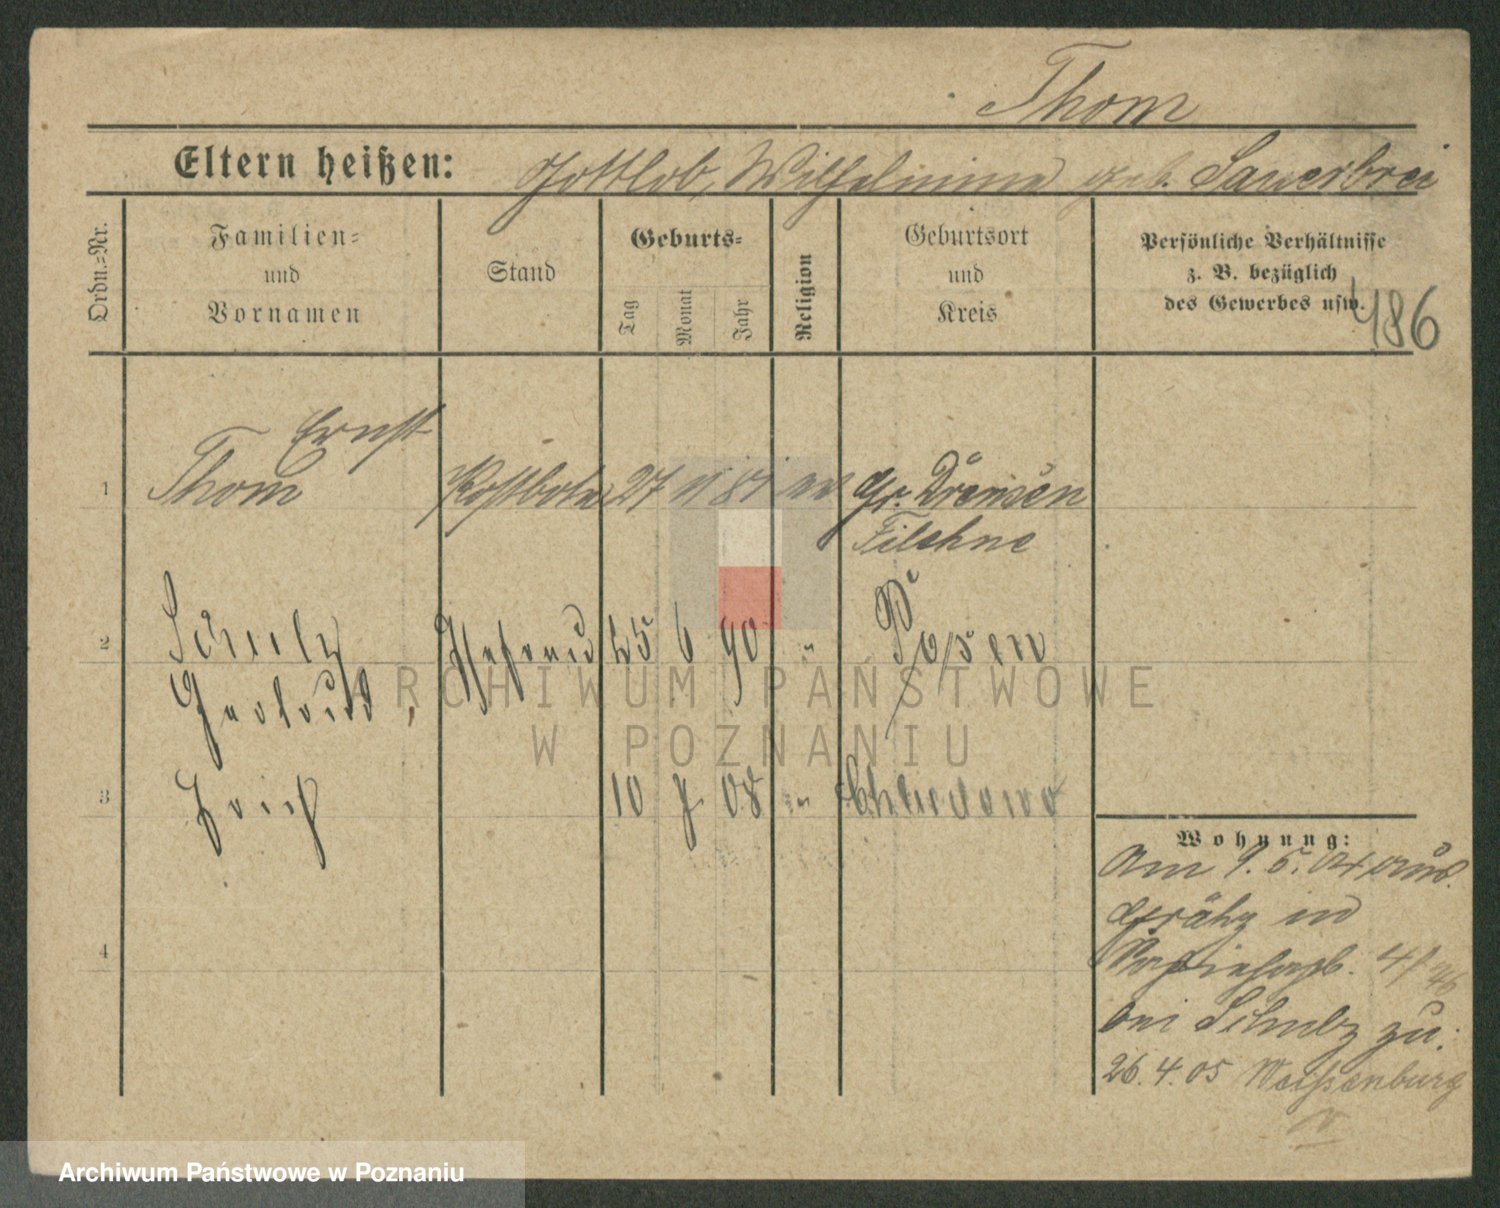 Thom
Eltern heißen: Gottlob, Wilhelmine geb. Sauerbrei
Ordn.=Nr.
Familien=
und
Vornamen
Stand
Geburts=
Tag
Monat
Jahr
Religion
Geburtsort
und
Kreis
Persönliche Verhältnisse
z. B. bezüglich
des Gewerbes usw.
486
Ernst
1 Thom Postbote 27 11 81 ev Gr. Drensen
Filehne
2 Schulz Ehefrau 25 6 90 " Posen
Gertrud
3 Erich 10 7 08 " Chludowo
4
Wohnung:
Am 9. 5. 04
in
4/
bei Schulz zu.
26. 4. 05 Weißenburg
ARCHIWUM PAŃSTWOWE
W POZNANIU
Archiwum Państwowe w Poznaniu